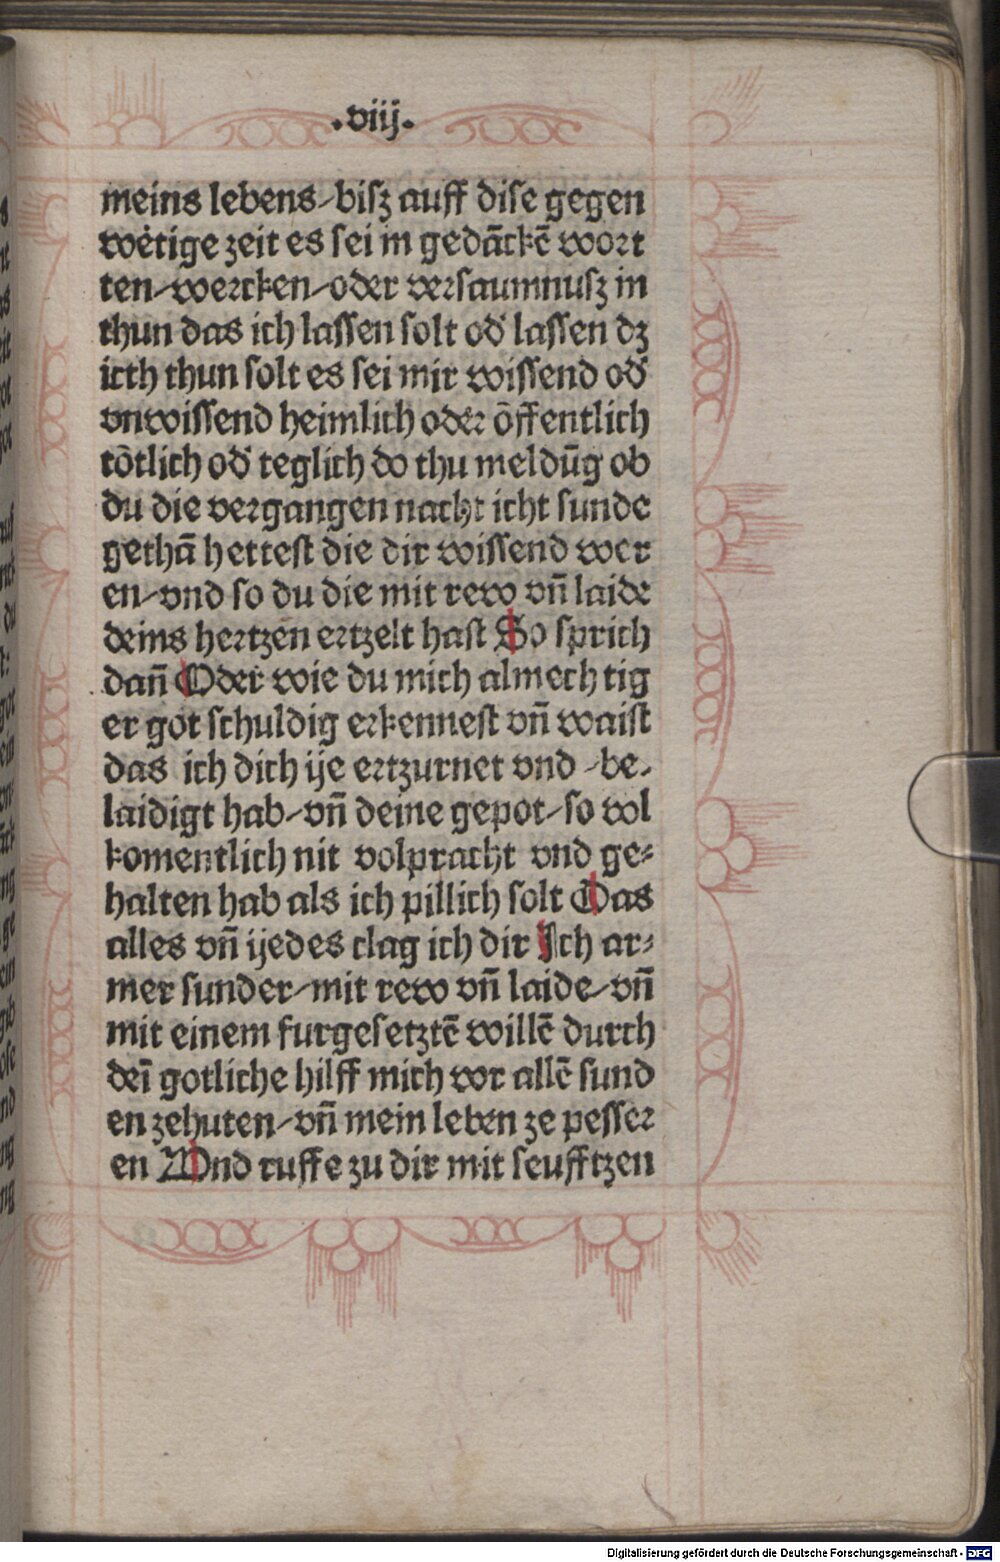 .viij.
meins lebens-bisz auff dise gegen
wẽtige zeit es sei in gedãckẽ wort
ten-wercken-oder versaumnusz in
thun das ich lassen solt od' lassen dz
icth thun solt es sei mir wissend od'
vnwissend heimlich oder õffentlich
tõtlich od' teglich do thu meldũg ob
du die vergangen nacht icht sunde
gethã hettest die dir wissend wer
en-vnd so du die mit rew vñ laide
deins hertzen ertzelt hast So sprich
dañ Oder wie du mich almechtig
er got schuldig erkennest vñ waist
das ich dich ije ertzurnet vnd -be-
laidigt hab-vñ deine gepot-so vol
komentlich nit volpracht vnd ge-
halten hab als ich pillich solt Das
alles vñ ijedes clag ich dir Ich ar-
mer sunder-mit rew vñ laide-vñ
mit einem furgesetztẽ willẽ durch
deĩ gotliche hilff mich vor allẽ sund
en zehuten-vñ mein leben ze pesser
en Vnd ruffe zu dir mit seufftzen
Digitalisierung gefördert durch die Deutsche Forschungsgemeinschaft - DFG